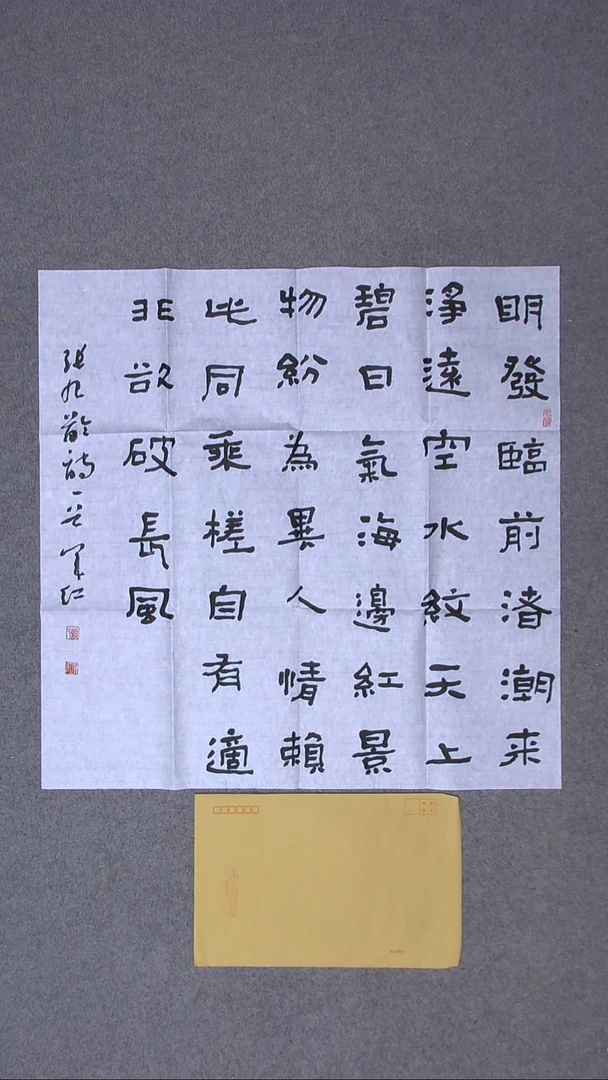 明發臨前渚潮来
淨遠空水紋天上
碧日氣海邊紅景
物紛為異人情賴
此同乘槎自有適
非欲破長風
張九齡詩一首